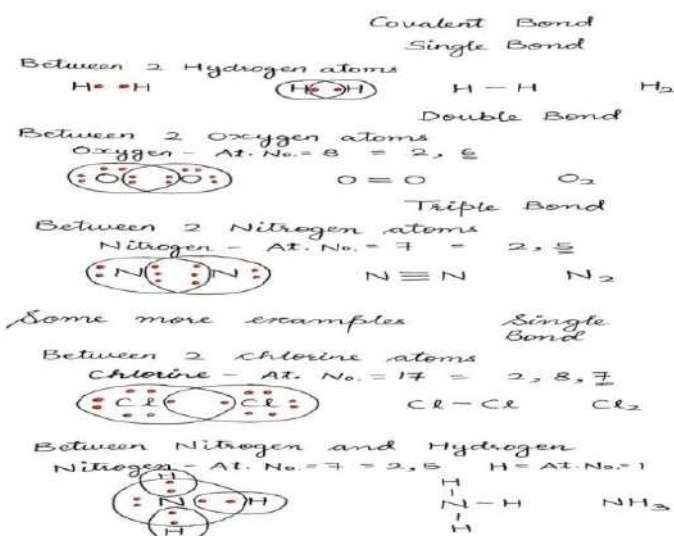 Covalent Bond
Single Bond
Between 2 Hydrogen atoms
H H H H H — H H₂
Double Bond
Between 2 Oxygen atoms
Oxygen — At. No. = 8 = 2, 6
O O O = O O₂
Triple Bond
Between 2 Nitrogen atoms
Nitrogen — At. No. = 7 = 2, 5
N N N ≡ N N₂
Some more examples Single
Bond
Between 2 chlorine atoms
Chlorine — At. No. = 17 = 2, 8, 7
Cl Cl Cl — Cl Cl₂
Between Nitrogen and Hydrogen
Nitrogen — At. No. = 7 = 2, 5 H = At. No. = 1
H H
N H N — H NH₃
H H